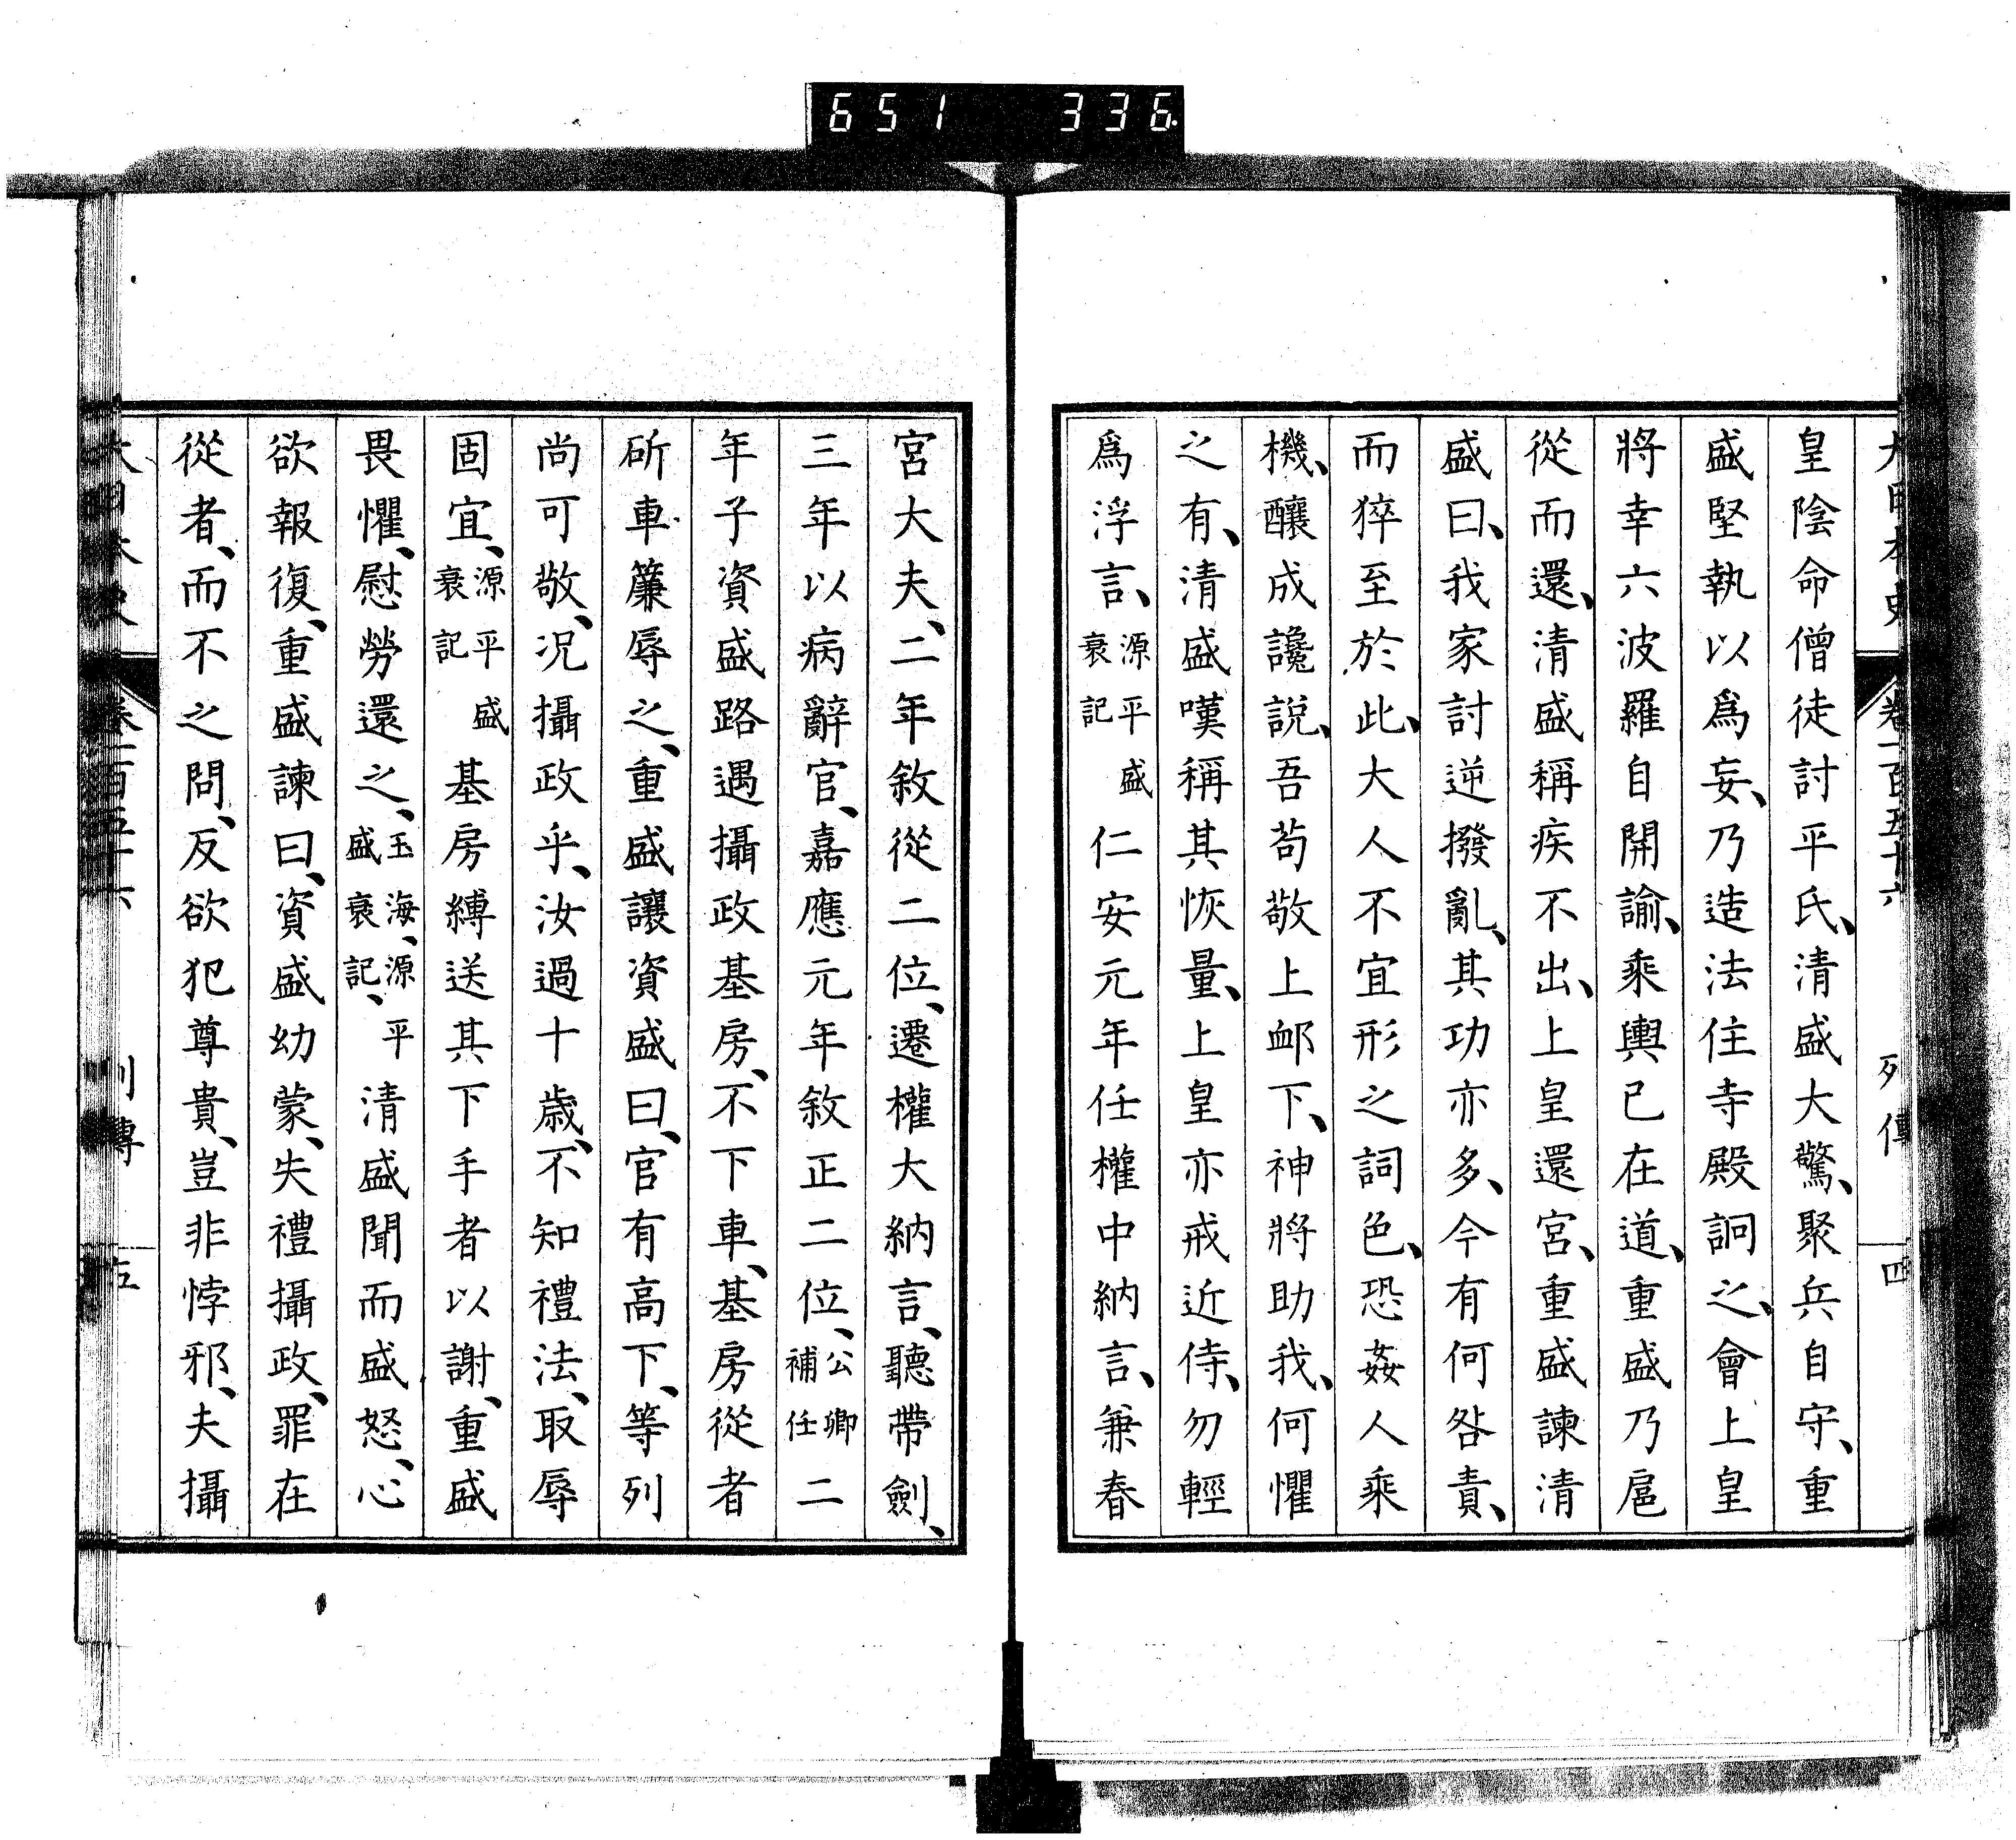 651 336
大日本史 卷一百五十六 列傳 四
皇陰命僧徒討平氏、清盛大驚、聚兵自守、重
盛堅執以爲妄、乃造法住寺殿詗之、會上皇
將幸六波羅自開諭、乘輿已在道、重盛乃扈
從而還、清盛稱疾不出、上皇還宮、重盛諫清
盛曰、我家討逆撥亂、其功亦多、今有何咎責、
而猝至於此、大人不宜形之詞色、恐姦人乘
機、釀成讒説、吾苟敬上䘏下、神將助我、何懼
之有、清盛嘆稱其恢量、上皇亦戒近侍、勿輕
爲浮言、源平盛衰記仁安元年任權中納言、兼春
宮大夫、二年敘從二位、遷權大納言、聽帶劍、
三年以病辭官、嘉應元年敘正二位、公卿補任二
年子資盛路遇攝政基房、不下車、基房從者
斫車簾辱之、重盛讓資盛曰、官有高下、等列
尚可敬、況攝政乎、汝過十歳、不知禮法、取辱
固宜、源平盛衰記基房縛送其下手者以謝、重盛
畏懼、慰勞還之、玉海、源平盛衰記、清盛聞而盛怒、心
欲報復、重盛諫曰、資盛幼蒙、失禮攝政、罪在
從者、而不之問、反欲犯尊貴、豈非悖邪、夫攝
大日本史 卷一百五十六 列傳 五